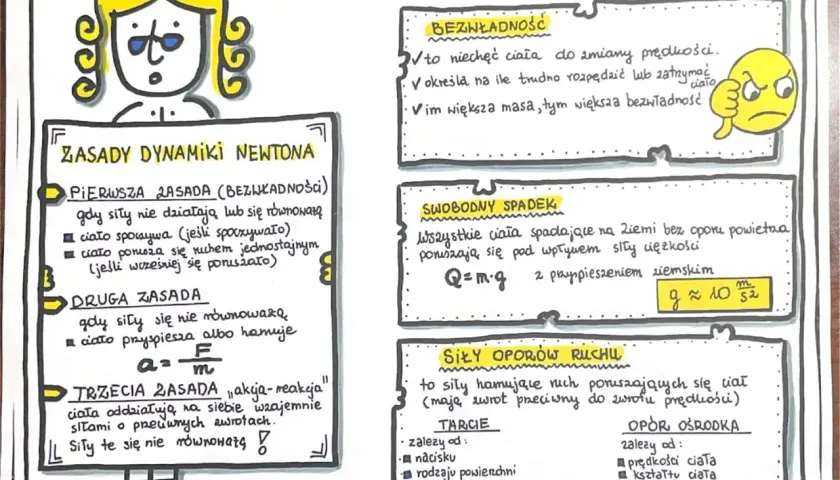 ZASADY DYNAMIKI NEWTONA
PIERWSZA ZASADA (BEZWŁADNOŚCI)
gdy siły nie działają lub się równoważą
ciało spoczywa (jeśli spoczywało)
ciało porusza się ruchem jednostajnym
(jeśli wcześniej się poruszało)
DRUGA ZASADA
gdy siły się nie równoważą
ciało przyspiesza albo hamuje
a = F/m
TRZECIA ZASADA „akcja-reakcja"
ciała oddziałują na siebie wzajemnie
siłami o przeciwnych zwrotach.
Siły te się nie równoważą!
BEZWŁADNOŚĆ
✓ to niechęć ciała do zmiany prędkości.
✓ określa na ile trudno rozpędzić lub zatrzymać
ciało
✓ im większa masa, tym większa bezwładność
SWOBODNY SPADEK
Wszystkie ciała spadające na Ziemi bez oporu powietrza
poruszają się pod wpływem siły ciężkości
Q = m·g z przyspieszeniem ziemskim
g ≈ 10 m/s2
SIŁY OPORÓW RUCHU
to siły hamujące ruch poruszających się ciał
(mają zwrot przeciwny do zwrotu prędkości)
TARCIE
· zależy od:
nacisku
rodzaju powierzchni
OPÓR OŚRODKA
zależy od:
prędkości ciała
kształtu ciała